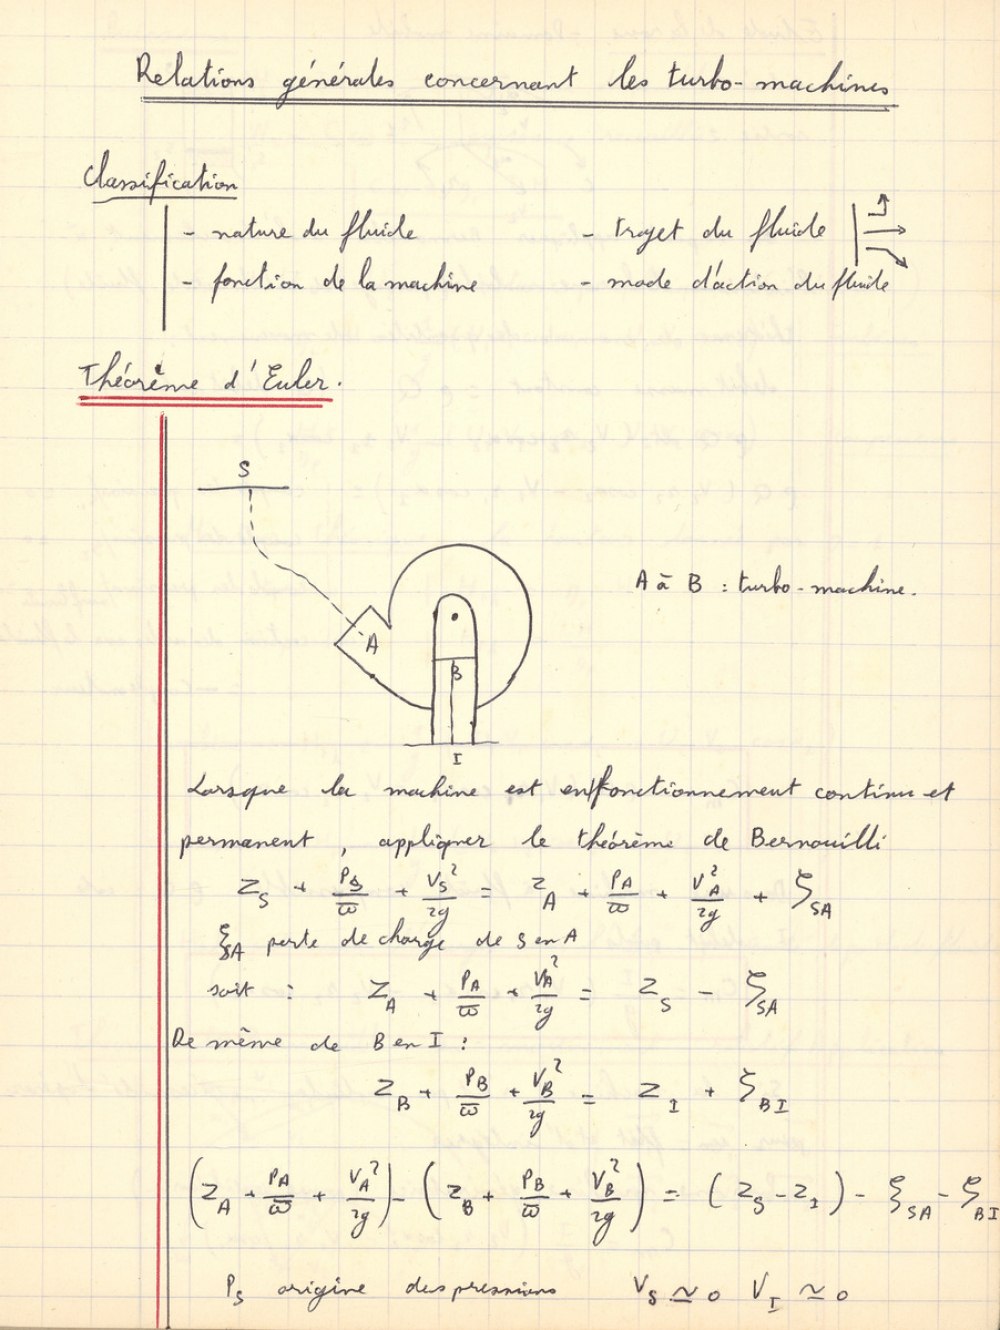 Relations générales concernant les turbo-machines
Classification
- nature du fluide - trajet du fluide
- fonction de la machine - mode d'action du fluide
Théorème d'Euler.
S
A à B : turbo-machine.
A
B
I
Lorsque la machine est en fonctionnement continu et
permanent, appliquer le théorème de Bernouilli
Z_S + P_S/ϖ + V_S²/2g = Z_A + P_A/ϖ + V_A²/2g + ζ_SA
ξ_SA perte de charge de S en A
soit : Z_A + P_A/ϖ + V_A²/2g = Z_S - ζ_SA
De même de B en I :
Z_B + P_B/ϖ + V_B²/2g = Z_I + ζ_BI
(Z_A + P_A/ϖ + V_A²/2g) - (Z_B + P_B/ϖ + V_B²/2g) = (Z_S - Z_I) - ξ_SA - ζ_BI
P_S origine des pressions V_S ≃ 0 V_I ≃ 0